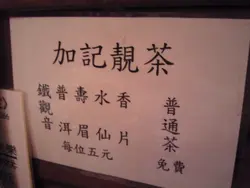 加記靚茶
鐵觀音
普洱
壽眉
水仙
香片
每位五元
普通茶
免費